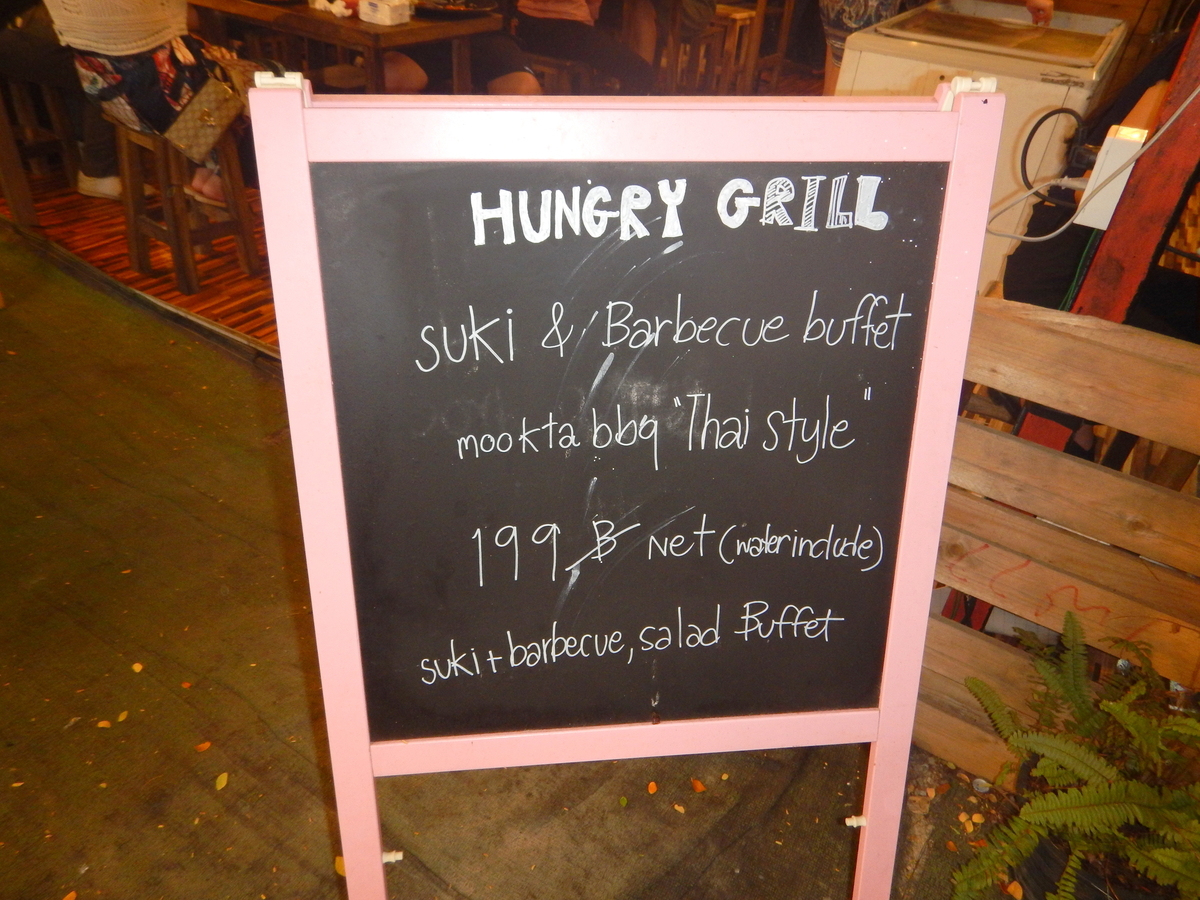 HUNGRY GRILL
suki & Barbecue buffet
mookta bbq "Thai style"
199.฿ Net (water include)
suki + barbecue, salad Buffet